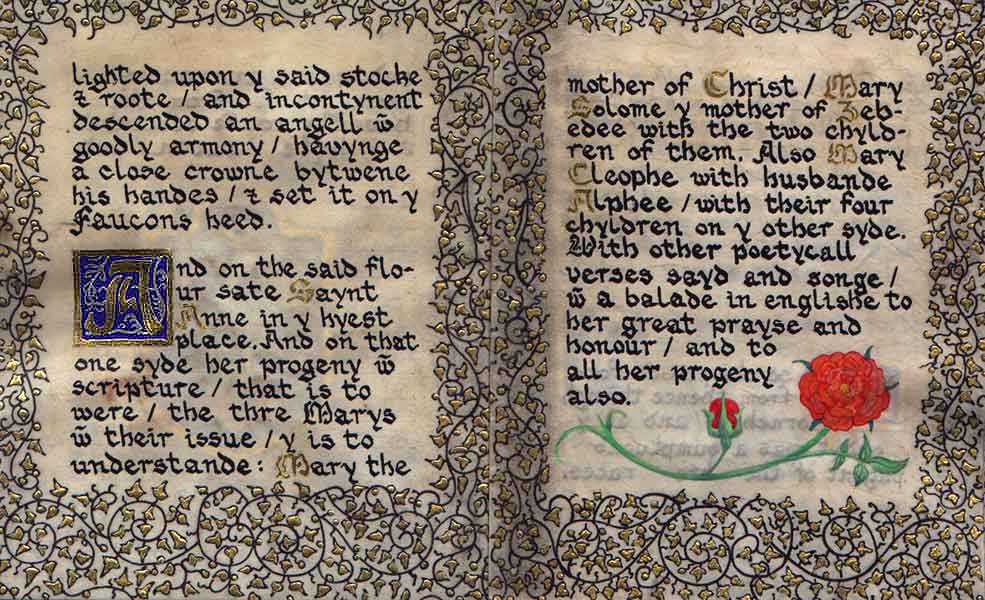 lighted upon y said stocke
⁊ roote / and incontynent
descended an angell w̄
goodly armony / havynge
a close crowne bytwene
his handes / ⁊ set it on y
Faucons heed.
And on the said flo-
ur sate Saynt
Anne in y hyest
place. And on that
one syde her progeny w̄
scripture / that is to
were / the thre Marys
w̄ their issue / y is to
understande: Mary the
mother of Christ / Mary
Solome y mother of Zeb-
edee with the two chyld-
ren of them. Also Mary
Cleophe with husbande
Alphee / with their four
chyldren on y other syde.
With other poetycall
verses sayd and songe /
w̄ a balade in englishe to
her great prayse and
honour / and to
all her progeny
also.